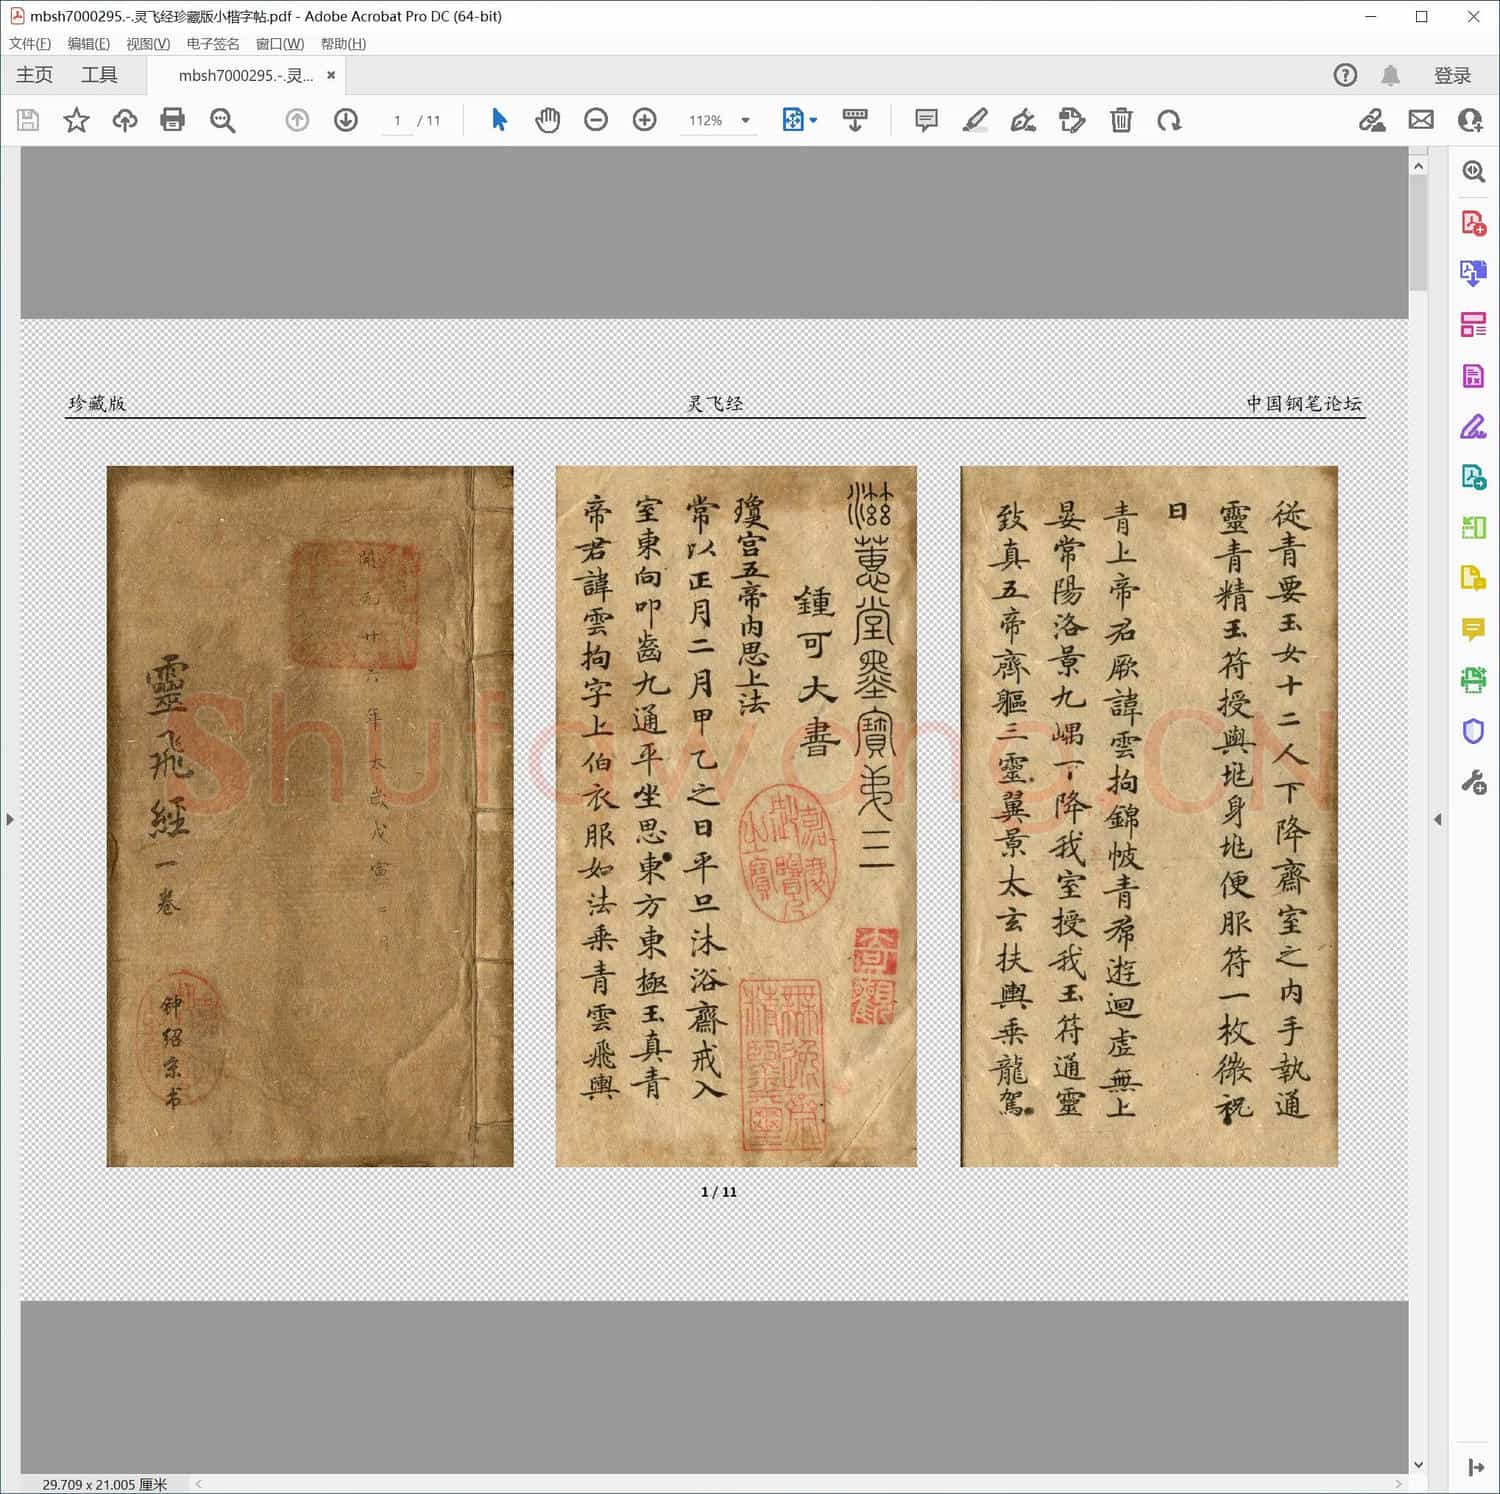 mbsh7000295.-.灵飞经珍藏版小楷字帖.pdf - Adobe Acrobat Pro DC (64-bit)
文件(F) 编辑(E) 视图(V) 电子签名 窗口(W) 帮助(H)
主页 工具 mbsh7000295.-.灵... × 登录
1 / 11 112%
珍藏版 灵飞经 中国钢笔论坛
開元廿六年太歲戊寅二月
靈飛經一卷
钟绍京书
滋蕙堂墨寶弟三
鍾可大書
瓊宮五帝内思上法
常以正月二月甲乙之日平旦沐浴齋戒入
室東向叩齒九通平坐思東方東極玉真青
帝君諱雲拘字上伯衣服如法乘青雲飛輿
從青要玉女十二人下降齋室之内手執通
靈青精玉符授與兆身兆便服符一枚微祝
曰
青上帝君厥諱雲拘錦帔青帬遊迴虚無上
晏常陽洛景九嵎下降我室授我玉符通靈
致真五帝齊軀三靈翼景太玄扶輿乘龍駕
Shufawang.CN
1 / 11
29.709 x 21.005 厘米